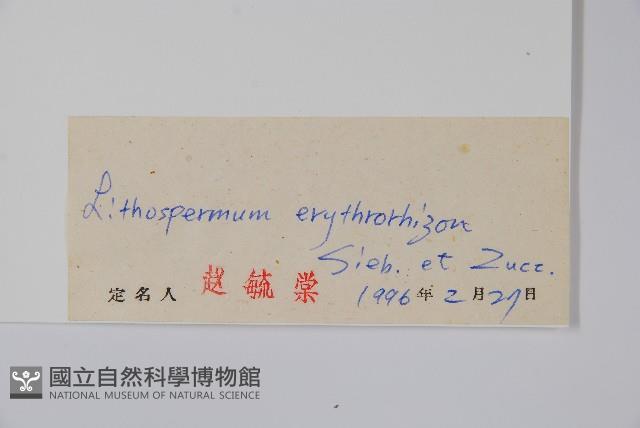 Lithospermum erythrorhizon
Sieb. et Zucc.
定名人 赵毓棠 1996年2月27日
國立自然科學博物館
NATIONAL MUSEUM OF NATURAL SCIENCE